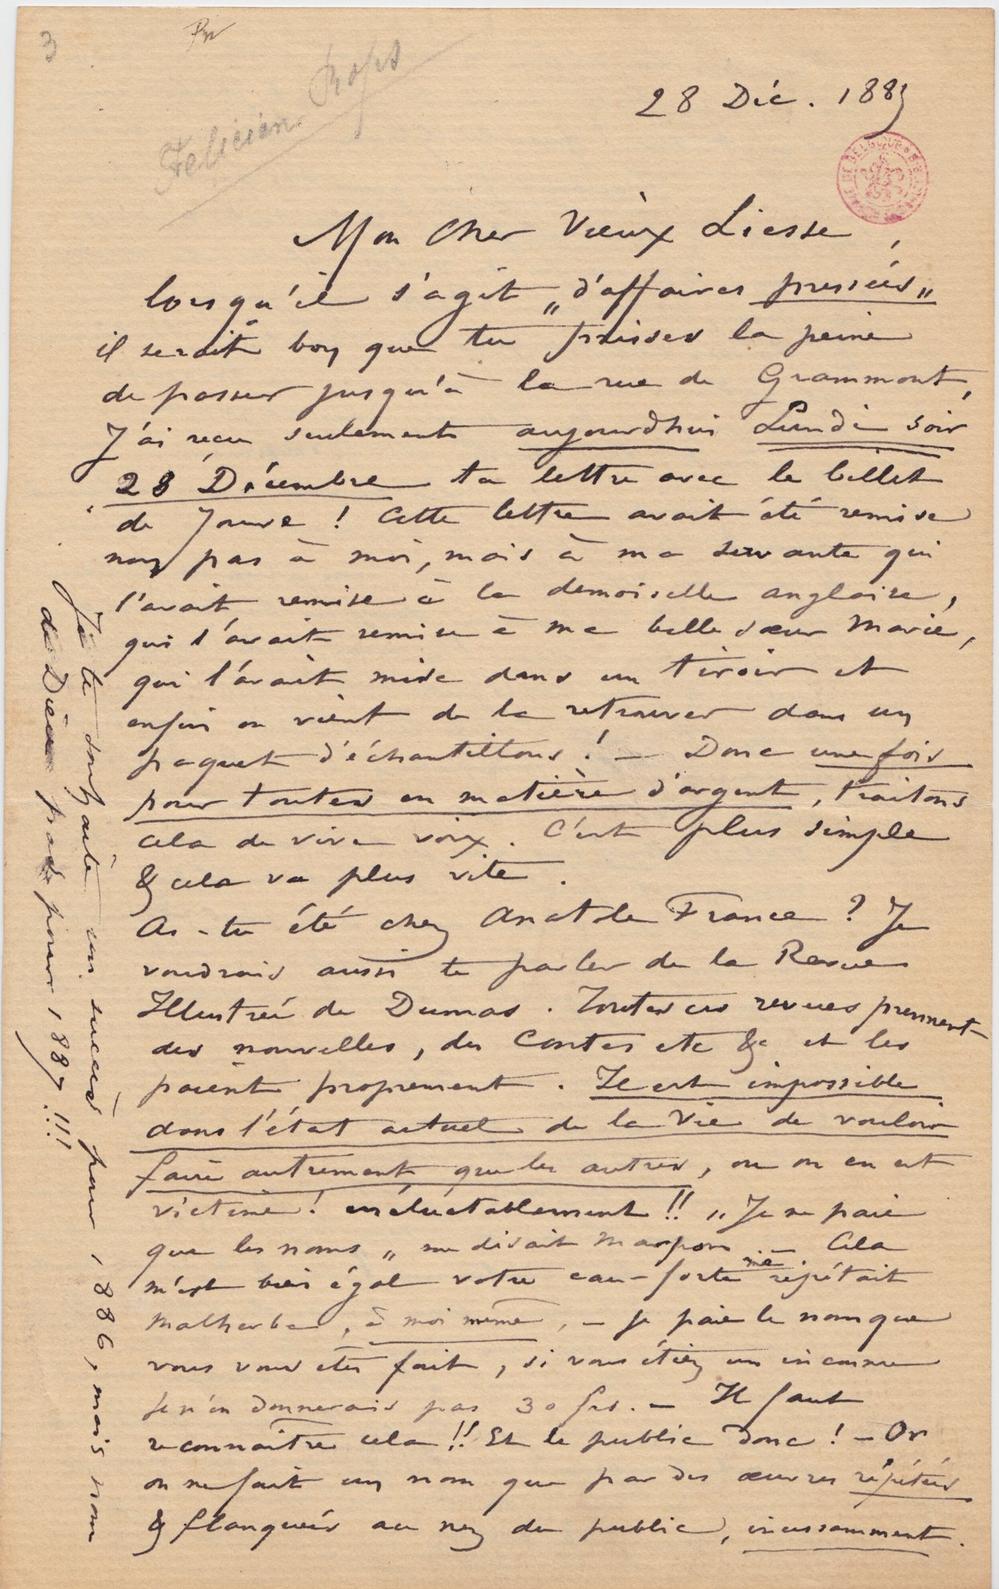 3
Félicien Rops
28 Déc. 1885
Mon Cher Vieux Liesse,
lorsqu'il s'agit „d'affaires pressées„
il serait bon que tu prisses la peine
de passer jusqu'à la rue de Grammont,
J'ai reçu seulement aujourdhui Lundi soir
28 Décembre ta lettre avec le billet
de Jouve ! Cette lettre avait été remise
non pas à moi, mais à ma servante qui
l'avait remise à la demoiselle anglaise,
qui l'avait remise à ma belle sœur Marie,
qui l'avait mise dans un tiroir et
enfin on vient de la retrouver dans un
paquet d'échantillons ! — Donc une fois
pour toutes en matière d'argent, traitons
cela de vive voix. C'est plus simple
& cela va plus vite.
As-tu été chez Anatole France ? Je
voudrais aussi te parler de la Revue
Illustrée de Dumas. Toutes ces revues prennent
des nouvelles, des Contes etc &c et les
paient proprement. Il est impossible
dans l'état actuel de la Vie de vouloir
faire autrement que les autres, ou on en est
victime ! inéluctablement !! „Je ne paie
que les noms„ me disait Marpon — Cela
m'est bien égal votre eau-forte me répétait
Malherbe, à moi même, — je paie le nom que
vous vous êtes fait, si vous étiez un inconnu
je n'en donnerais pas 30 frs. — Il faut
reconnaître cela !! Et le public donc ! — Or
on ne fait un nom que par des œuvres répétées
& flanquées au nez du public, incessamment.
Je te souhaite un succès pour 1886, mais nom
de Dieu pas pour 1887 !!!